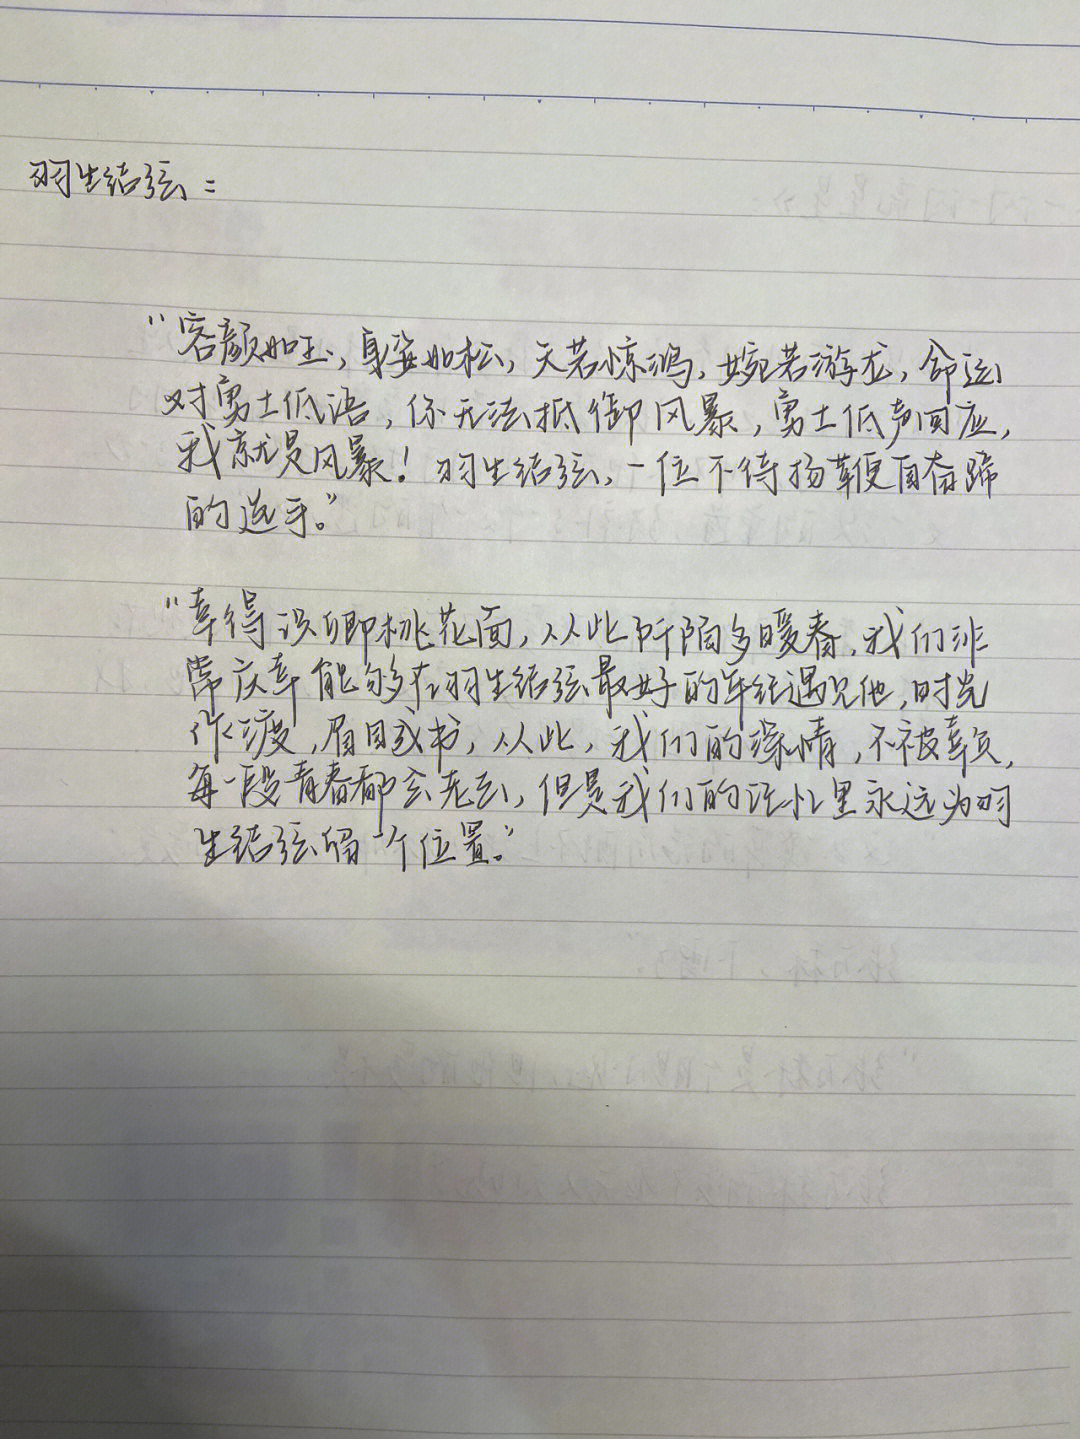 羽生结弦：
“容颜如玉，身姿如松，天若惊鸿，婉若游龙，命运
对勇士低语，你无法抵御风暴，勇士低声回应，
我就是风暴！羽生结弦，一位不待扬鞭便自奋蹄
的选手。”
“幸得识卿桃花面，从此阡陌多暖春，我们非
常庆幸能够在羽生结弦最好的年纪遇见他，时光
作渡，眉目成书，从此，我们的深情，不被辜负，
每一段青春都会老去，但是我们的记忆里永远为羽
生结弦留一个位置。”